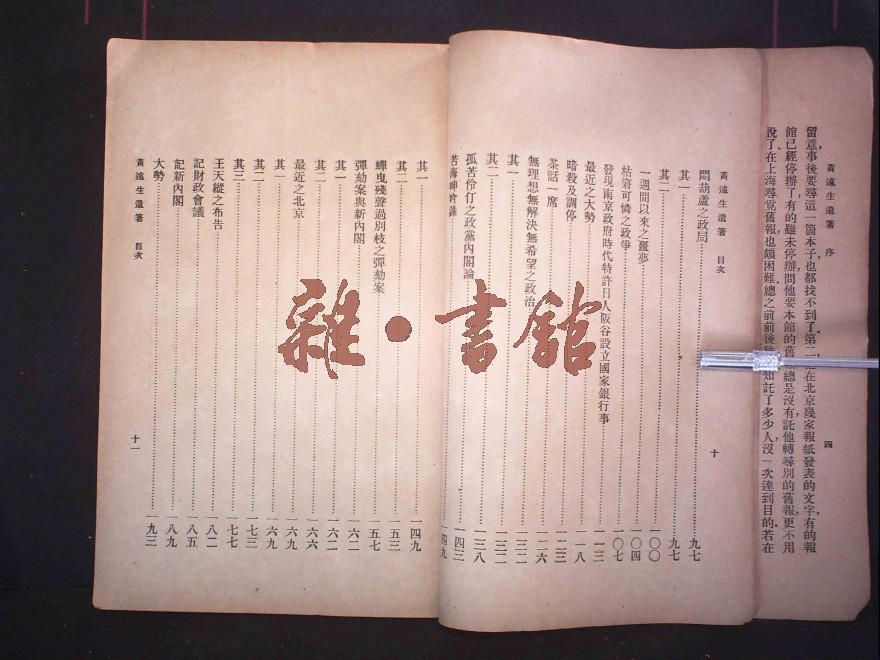 留意事後要尋這一箇本子也都找不到了第二
在北京幾家報紙發表的文字有的報
館已經停辦了有的雖未停辦問他要本館的舊
總是沒有託他轉尋別的舊報更不用
說了在上海尋覓舊報也頗困難總之前前後
託了多少人沒一次達到目的若在
黃遠生遺著 序
四
黃遠生遺著 目次
十
悶葫蘆之政局 九七
其一 九七
其二 一〇〇
一週間以來之噩夢 一〇四
枯窘可憐之政爭 一〇七
發現南京政府時代特許日人阪谷設立國家銀行事 一一三
最近之大勢 一一八
暗殺及調停 一二三
茶話一席 一二六
無理想無解決無希望之政治 一三二
其一 一三二
其二 一三八
孤苦伶仃之政黨內閣論 一四三
苦海呻吟錄 一四九
其一 一四九
其二 一五三
蟬曳殘聲過別枝之彈劾案 一五七
彈劾案與新內閣 一六二
其一 一六二
其二 一六六
最近之北京 一六九
其一 一六九
其二 一七三
其三 一七七
王天縱之布告 一八二
記財政會議 一八五
記新內閣 一八九
大勢 一九三
黃遠生遺著 目次
十一
雜·書館